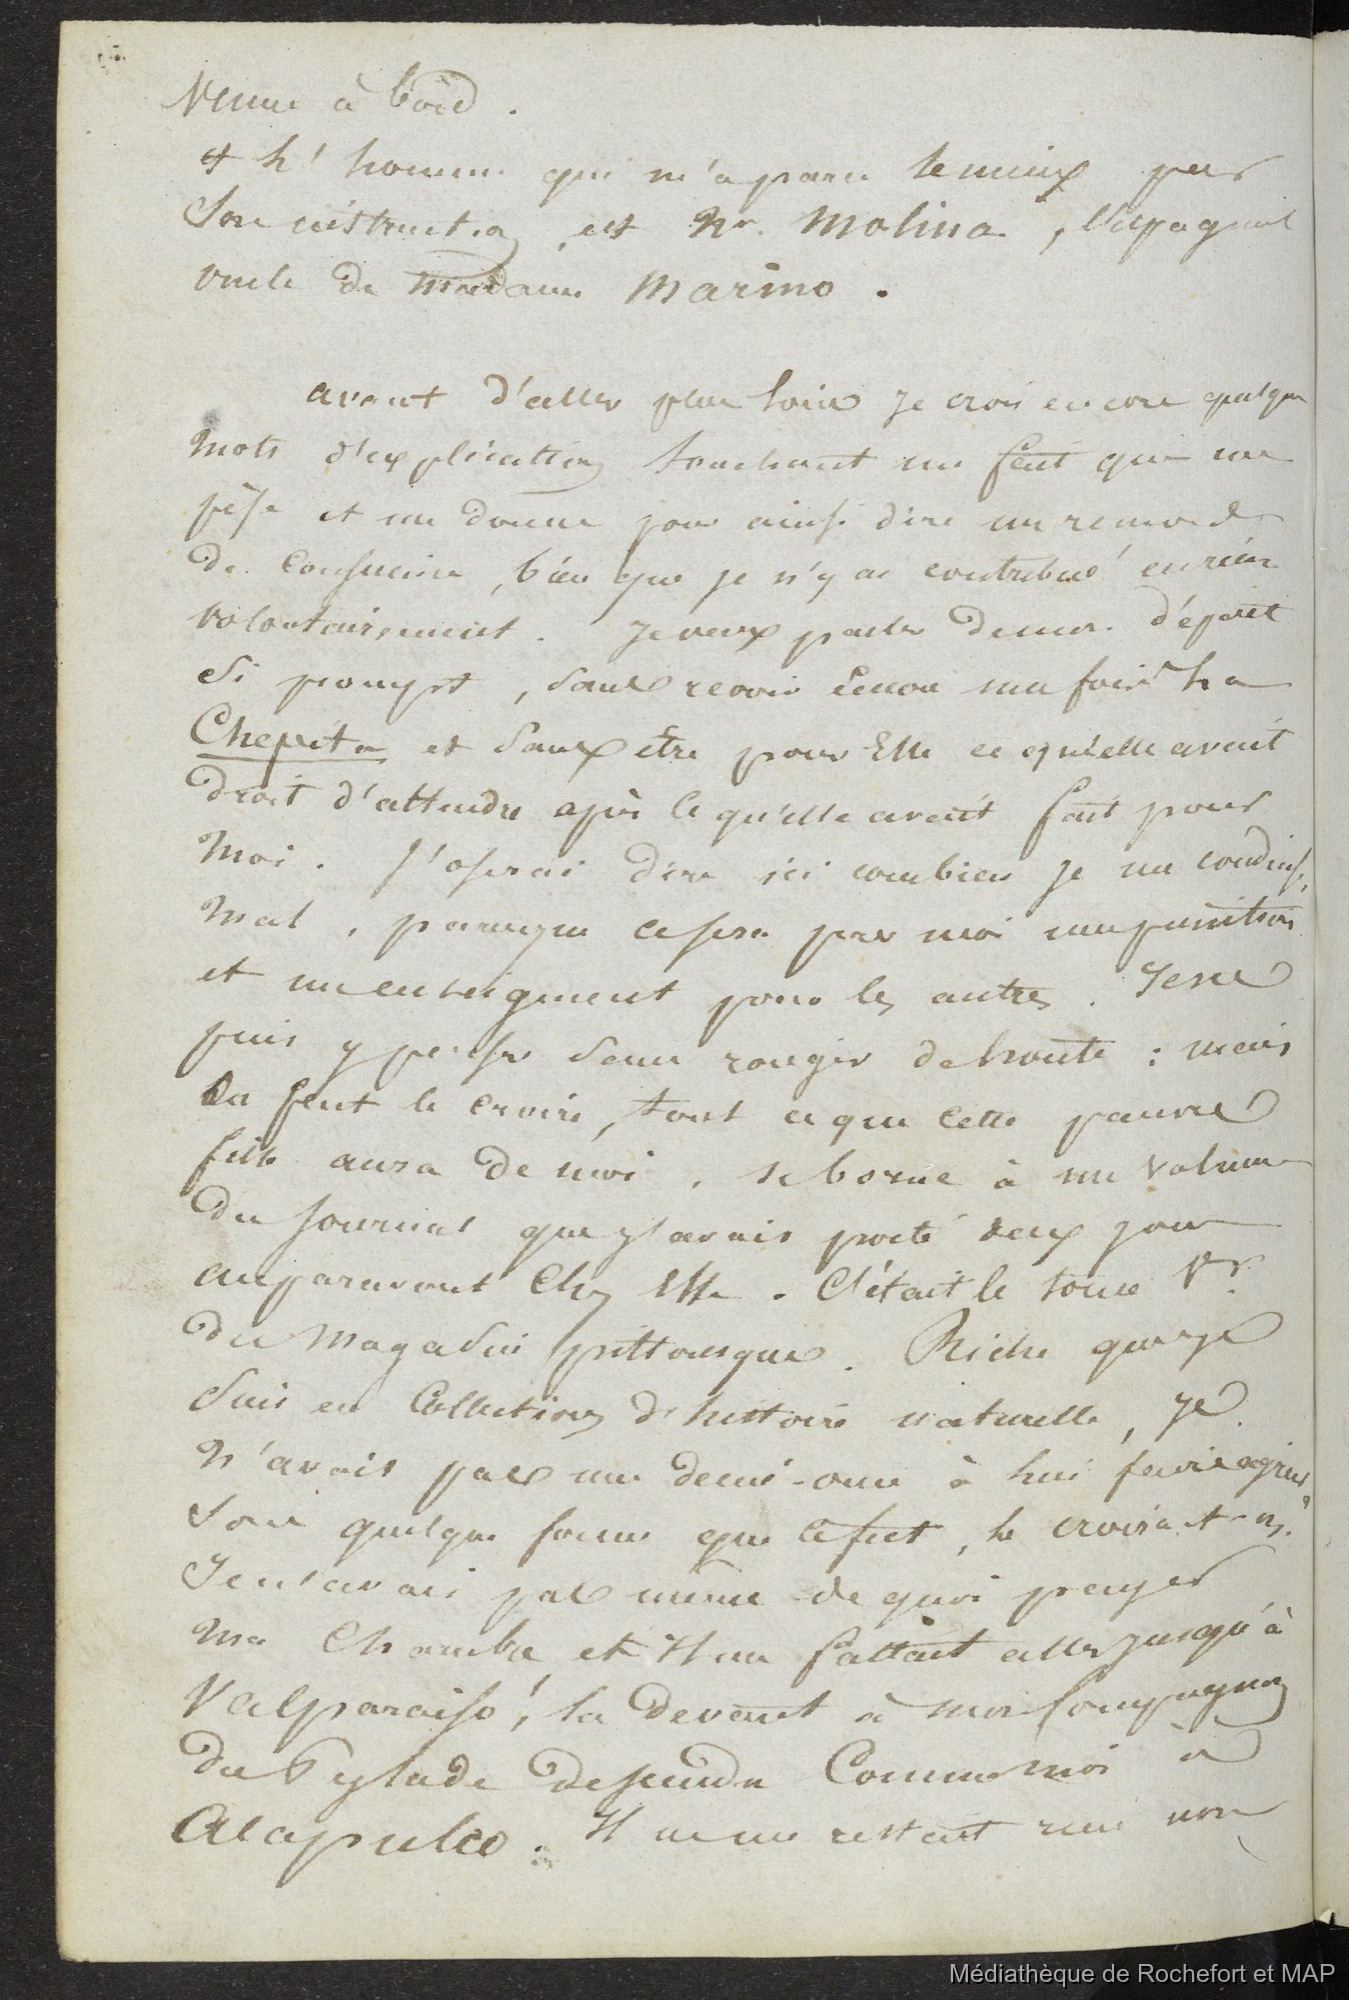 venue à bord.
+ L'homme qui m'a paru le mieux par
Son instruction, est Mr. Molina, Espagnol
oncle de Madame Marino.
avant d'aller plus loin Je crois encore quelque
mots d'explication touchant un fait qui me
pèse et me donne pour ainsi dire un remord
de Conscience, bien que je n'y ai contribué en rien
volontairement. Je veux parler de mon départ
Si prompt, Sans revoir Encore une fois La
Chepita et Sans être pour Elle ce qu'elle avait
droit d'attendre après ce qu'elle avait fait pour
Moi. J'oserai dire ici combien je me conduisis
Mal, parceque ce sera pour moi une punition
et un enseignement pour les autres. Je ne
puis y penser Sans rougir de honte : mais
On peut le croire, tout ce que cette pauvre
fille aura de moi, se borne à un volume
du Journal que j'avais porté deux jours
auparavant Chez Elle. C'était le tome Vr.
du Magasin pittoresque. Riche que je
Suis en Collections d'histoire naturelle, Je
N'avais pas une demi-once à lui faire agréer
Sous quelque forme que ce fut, le croira-t-on,
Je n'avais pas même de quoi payer
Ma Chambre et Il me fallait aller jusqu'à
Valparaiso! la devant à mon Compagnon
du Pylade descendu Comme moi à
Acapulco. Il ne me restait rien non
Médiathèque de Rochefort et MAP